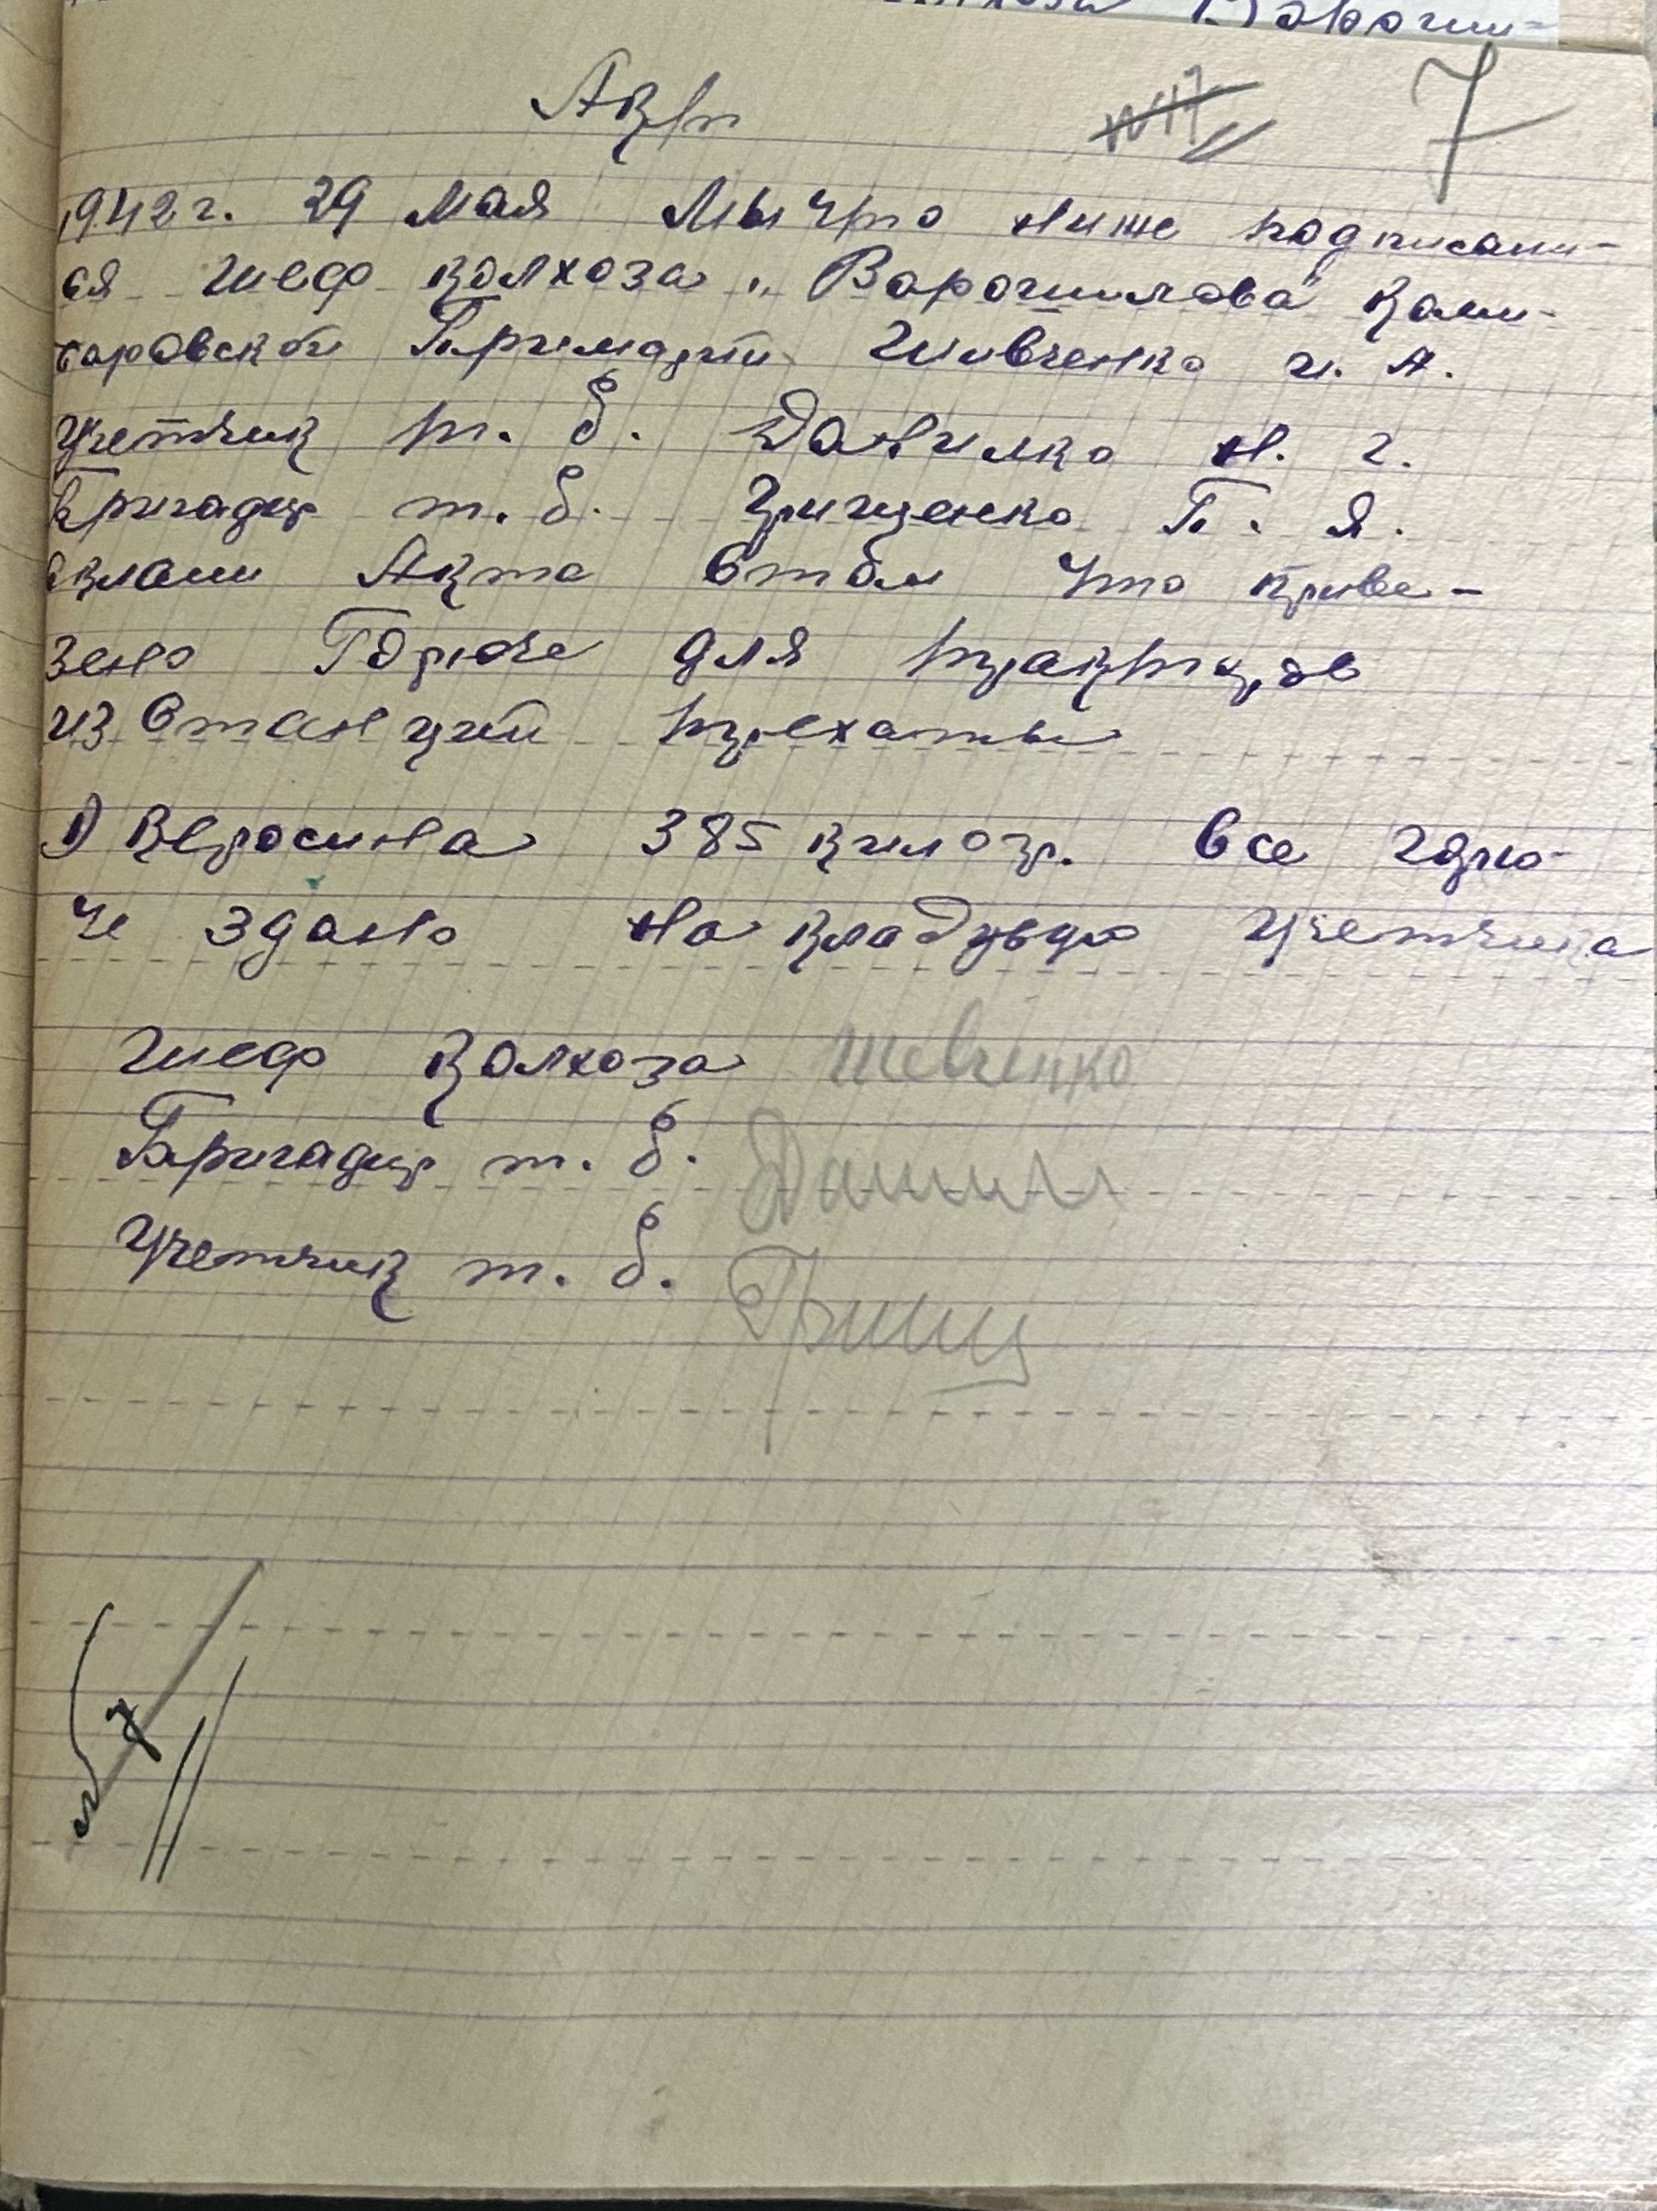 Акт
7
1942 г. 29 Мая Мы что ниже подписали-
ся шеф колхоза „Ворошилова" Коми-
саровской Громадый Шивченко И. А.
учетчик т. б. Данилко Н. Г.
Бригадир т. б. Грищенко П. Я.
Акта Втом что приве-
зено Горюче для тракторов
из Станций трехаты
1) Керосина 385 килогр. все горю-
че здано на кладувую учетчика
Шеф Колхоза Шевченко
Бригадир т. б.
Учетчик т. б. Грищ